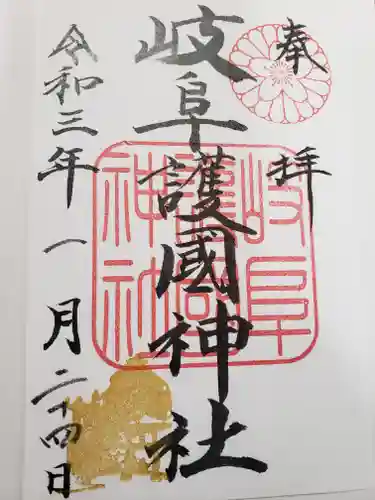 奉拝
岐阜護國神社
岐阜護國神社
令和三年一月二十四日